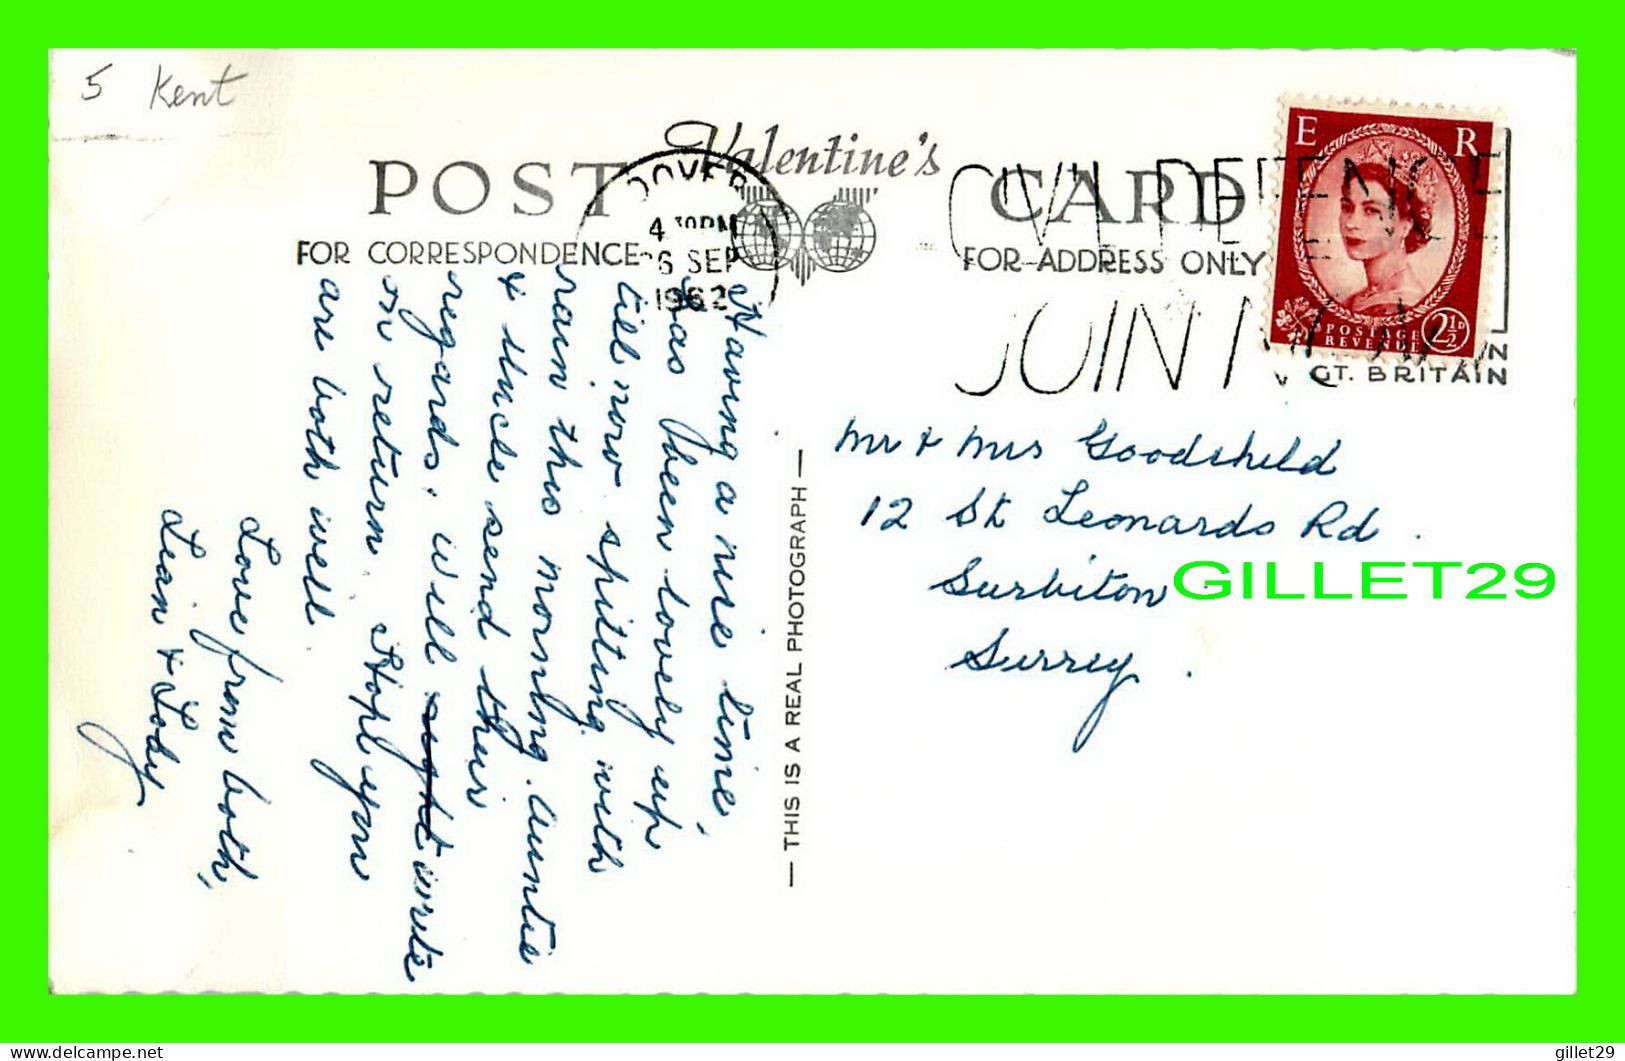 5 Kent
Valentine's
POST CARD
FOR CORRESPONDENCE
FOR ADDRESS ONLY
DOVER
4 30PM
6 SEP
1962
CIVIL DEFENCE
JOIN
E R
POSTAGE
REVENUE
2½D
GT. BRITAIN
Having a nice time,
has been lovely up
till now spitting with
rain this morning. Auntie
& Uncle send their
regards. will write
on return. Hope you
are both well.
Love from both,
Mr & Mrs Goodchild
12 St Leonards Rd.
Surbiton
Surrey.
— THIS IS A REAL PHOTOGRAPH —
GILLET29
delcampe.net
gillet29